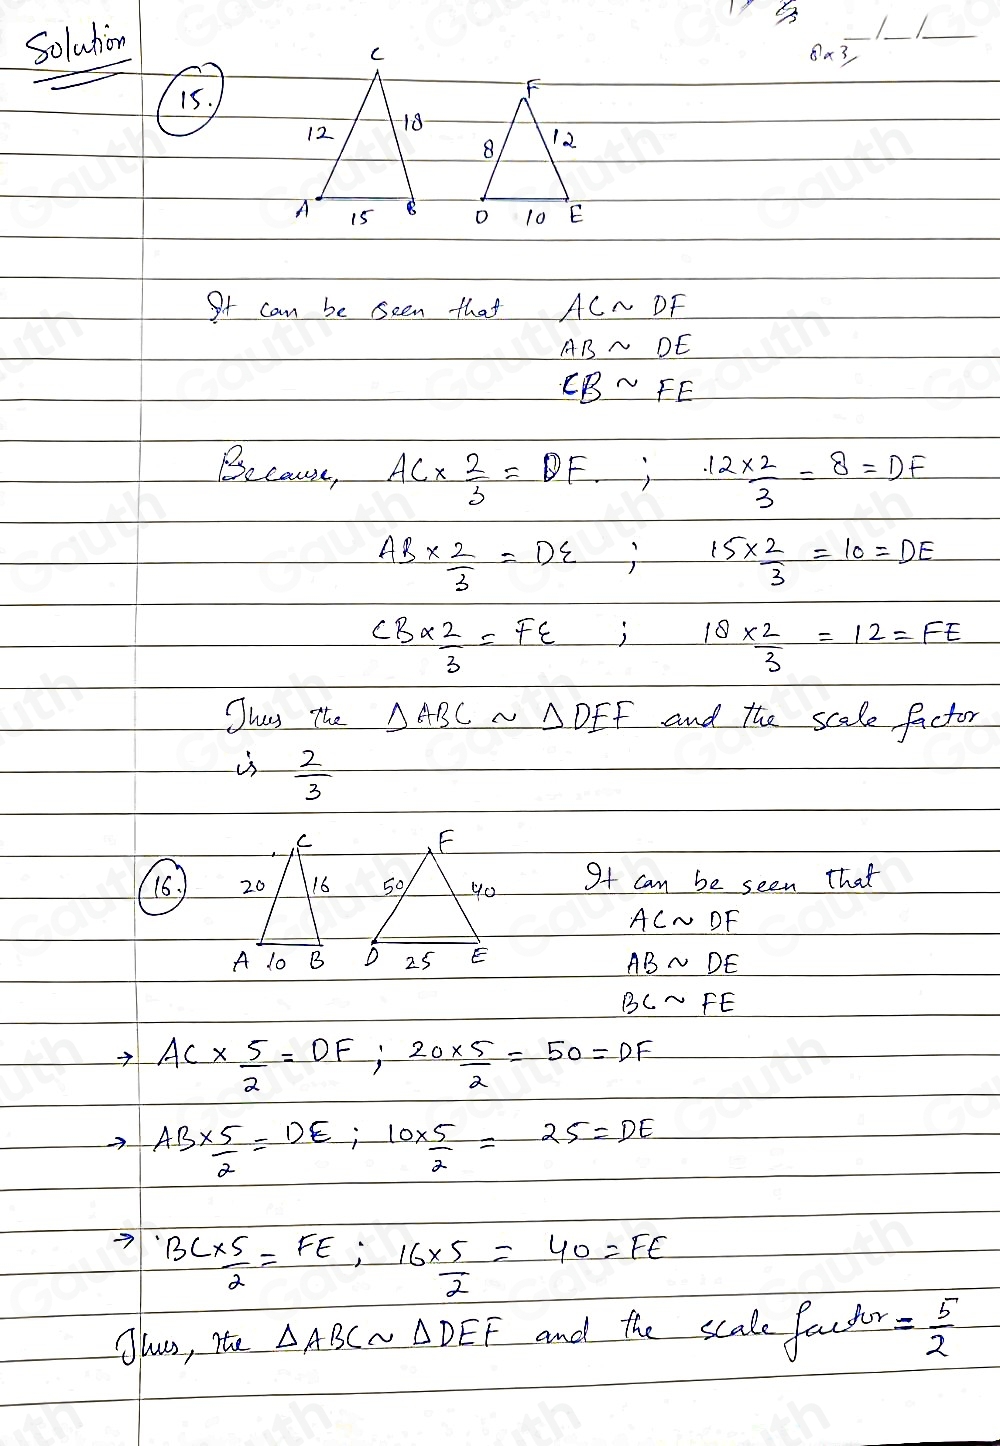 Solution
8×3
15.
C
F
12
18
8
12
A 15 B D 10 E
It can be seen that AC ~ DF
AB ~ DE
CB ~ FE
Because, AC × 2/3 = DF. ; 12×2/3 = 8 = DF
AB × 2/3 = DE ; 15×2/3 = 10 = DE
CB × 2/3 = FE ; 18×2/3 = 12 = FE
Thus the △ABC ~ △DEF and the scale factor
is 2/3
16.
C
F
20 16 50 40
A 10 B D 25 E
It can be seen that
AC ~ DF
AB ~ DE
BC ~ FE
→ AC × 5/2 = DF ; 20×5/2 = 50 = DF
→ AB×5/2 = DE ; 10×5/2 = 25 = DE
→ BC×5/2 = FE ; 16×5/2 = 40 = FE
Thus, the △ABC ~ △DEF and the scale factor = 5/2
Gauth